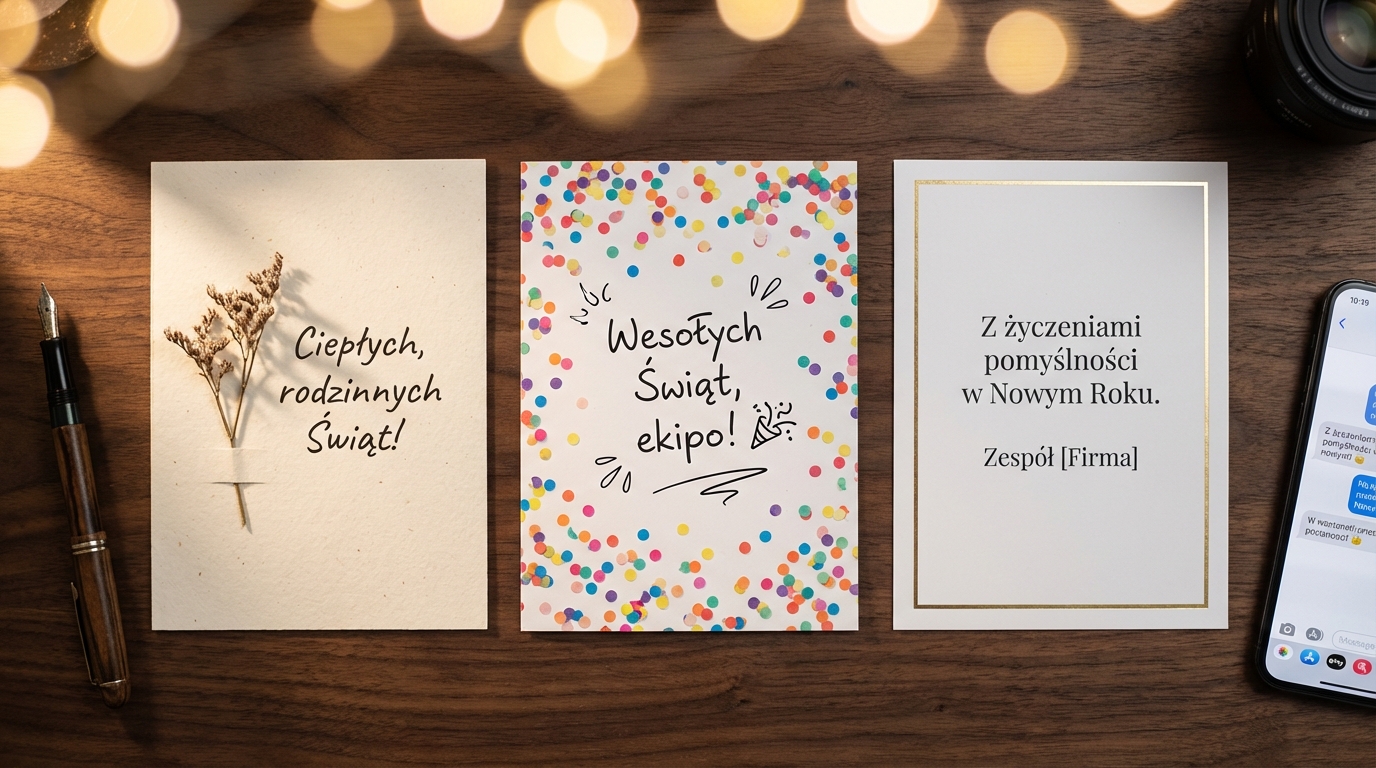 Ciepłych,
rodzinnych
Świąt!
Wesołych
Świąt,
ekipo!
Z życzeniami
pomyślności
w Nowym Roku.
Zespół [Firma]
10:19